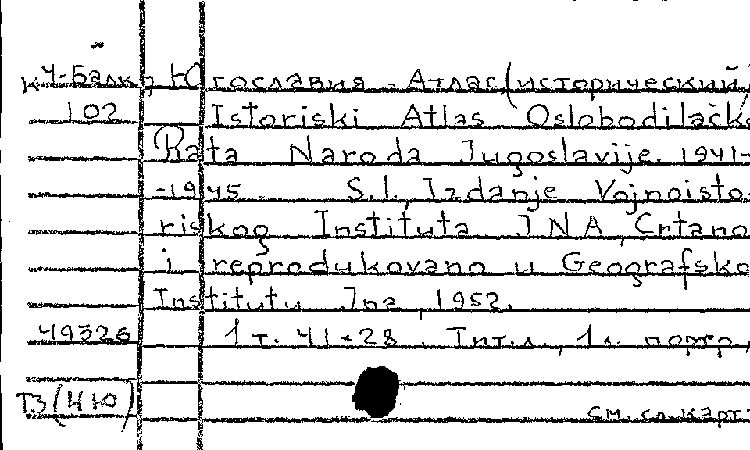 К Ч-Балк, Югославия - Атлас (исторический)
102 Istoriski Atlas Oslobodilačko
Rata Naroda Jugoslavije. 1941-
-1945 S.l., Izdanje Vojnoisto-
riskog Instituta JNA, Crtano
i reprodukovano u Geografsko
Institutu Jna, 1952.
49326 1 т. 41×28. Тит.л., 1 л. портр.,
Т3(4Ю)
см. сл. карт.